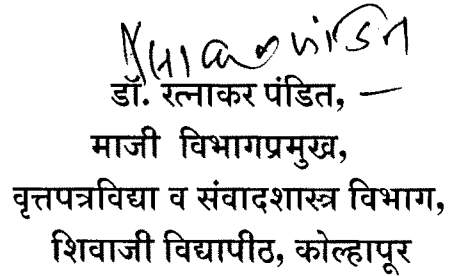 डॉ. रत्नाकर पंडित,
माजी विभागप्रमुख,
वृत्तपत्रविद्या व संवादशास्त्र विभाग,
शिवाजी विद्यापीठ, कोल्हापूर